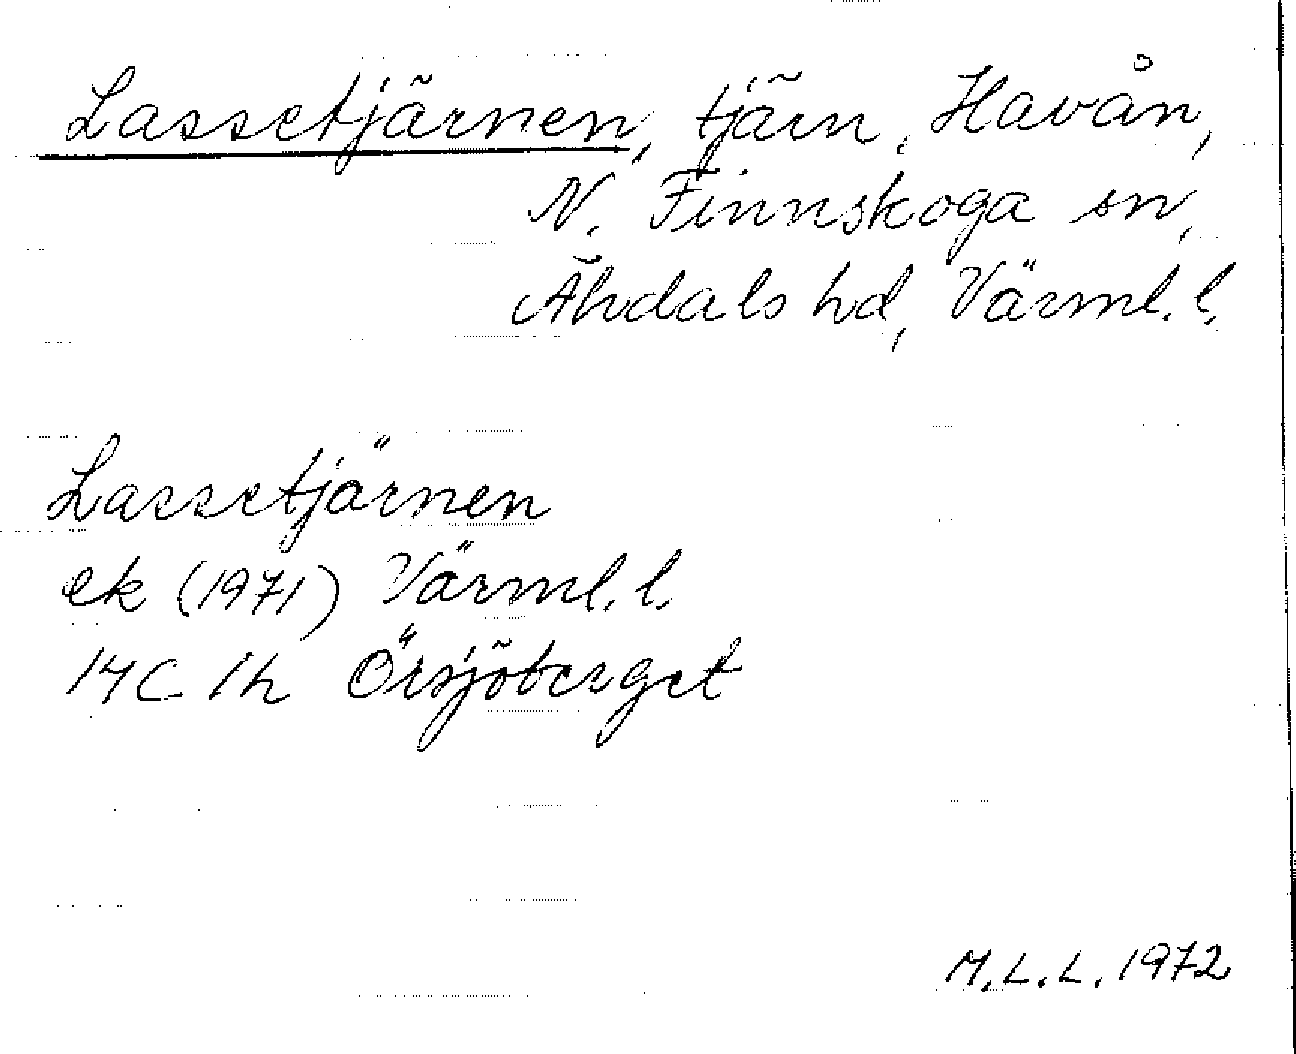 Lassetjärnen, tjärn, Havån,
N. Finnskoga sn,
Älvdals hd, Värml. l.
Lassetjärnen
ek (1971) Värml. l.
14C 1h Örsjöberget
M.L.L. 1972